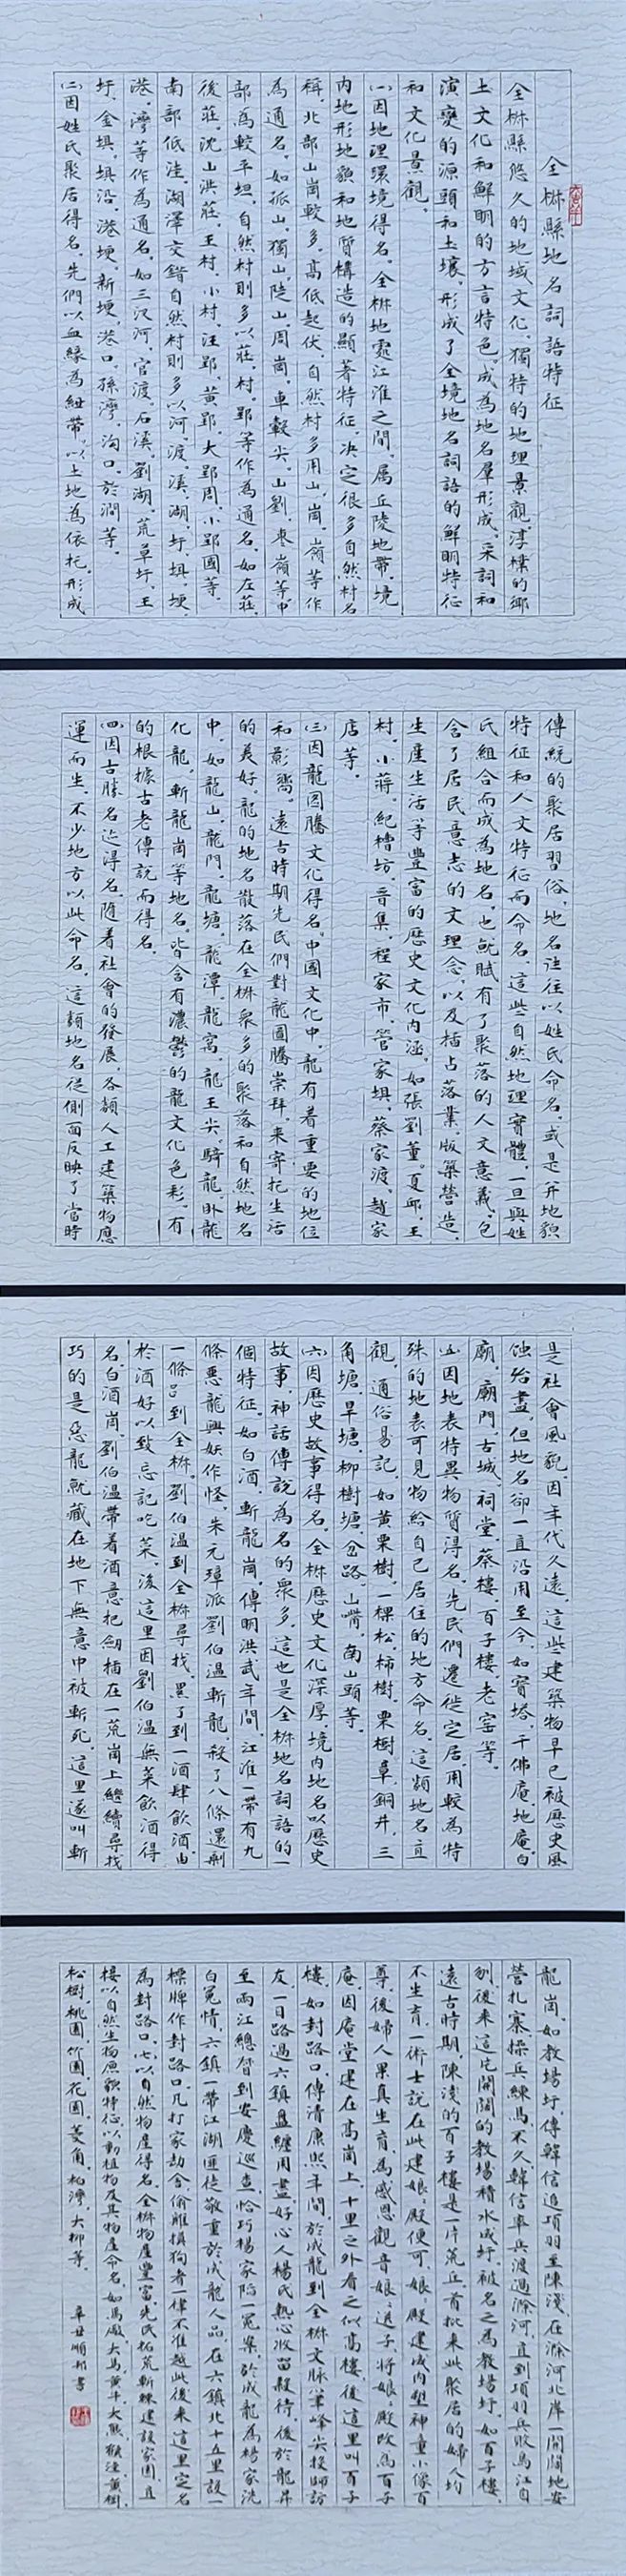 全椒縣地名詞語特征
全椒縣悠久的地域文化，獨特的地理景觀，淳樸的鄉
土文化和鮮明的方言特色，成為地名羣形成、采詞和
演變的源頭和土壤，形成了全境地名詞語的鮮明特征
和文化景觀。
㈠因地理環境得名。全椒地處江淮之間，屬丘陵地帶，境
内地形地貌和地質構造的顯著特征，决定很多自然村名
稱，北部山崗較多，高低起伏，自然村多用山、崗、嶺等作
為通名，如孤山、獨山、陡山、周崗、車轂尖、山劉、棗嶺等，中
部為較平坦，自然村則多以莊、村、郢等作為通名，如左莊、
後莊、沈山洪莊、王村、小村、汪郢、黄郢、大郢周、小郢國等，
南部低洼，湖澤交錯，自然村則多以河、渡、溪、湖、圩、埧、埂、
港、灣等作為通名，如三汊河、官渡、石溪、劉湖、荒草圩、王
圩、金埧、埧沿、港埂、新埂、港口、孫灣、沟口、於澗等。
㈡因姓氏聚居得名。先們以血緣為紐帶，以土地為依托，形成
傳統的聚居習俗，地名往往以姓氏命名，或是并地貌
特征和人文特征而命名。這些自然地理實體，一旦與姓
氏組合而成為地名，也就賦有了聚落的人文意義，包
含了居民意志的文理念，以及插占落業，版築營造，
生産生活等豐富的歷史文化内涵，如張劉董、夏郢、王
村、小蔣、紀槽坊、晋集、程家市、管家埧、蔡家渡、趙家
店等。
㈢因龍图騰文化得名。中國文化中，龍有着重要的地位
和影響，遠古時期先民們對龍圖騰崇拜，来寄托生活
的美好。龍的地名散落在全椒衆多的聚落和自然地名
中，如龍山、龍門、龍塘、龍潭、龍窩、龍王尖、騎龍、卧龍
化龍、斬龍崗等地名，皆含有濃鬱的龍文化色彩，有
的根據古老傳説而得名。
㈣因古勝名迹得名。隨着社會的發展，各類人工建築物應
運而生，不少地方以此命名，這類地名從側面反映了當時
是社會風貌，因年代久遠，這些建築物早已被歷史風
蝕殆盡，但地名卻一直沿用至今，如寶塔、千佛庵、地庵、白
廟、廟門、古城、祠堂、蔡樓、百子樓、老窑等。
㈤因地表特異物質得名。先民們遷徙定居，用較為特
殊的地表可見物給自己居住的地方命名，這類地名直
觀，通俗易記，如黄栗樹、一棵松、柿樹、栗樹章、銅井、三
角塘、旱塘、柳樹塘、岔路、山嘴、南山頭等。
㈥因歷史故事得名。全椒歷史文化深厚，境内地名以歷史
故事，神話傳説為名的衆多，這也是全椒地名詞語的一
個特征。如白酒、斬龍崗，傳明洪武年間，江淮一帶有九
條惡龍興妖作怪，朱元璋派劉伯温斬龍，殺了八條還剩
一條到全椒，劉伯温到全椒尋找，累了到一酒肆飲酒，由
於酒好以致忘記吃菜，後這里因劉伯温無菜飲酒得
名白酒崗。劉伯温帶着酒意把劍插在一荒崗上繼續尋找
巧的是惡龍就藏在地下無意中被斬死，這里遂叫斬
龍崗。如教場圩，傳韓信追項羽至陳淺，在滁河北岸一開闊地安
營扎寨操兵練馬，不久韓信率兵渡過滁河，直到項羽兵敗烏江自
刎，後來這片開闊的教場積水成圩，被名之為教場圩。如百子樓，
遠古時期，陳淺的百子樓是一片荒丘，首批来此聚居的婦人均
不生育，一術士説在此建娘娘殿便可，娘娘殿建成内塑神童小像百
尊，後婦人果真生育，為感恩觀音娘娘送子，將娘娘殿改為百子
庵，因庵堂建在高崗上，十里之外看之似高樓，後這里叫百子
樓。如封路口，傳清康熙年間，於成龍到全椒文脉筆峰尖投師訪
友，一日路過六鎮盘纏用盡，好心人楊氏熱心收留款待，後於龍昇
至兩江總督到安慶巡查，恰巧楊家陷一冤案，於成龍為楊家洗
白冤情，六鎮一帶江湖匪徒敬重於成龍人品，在六鎮北十五里設一
標牌作封路口，凡打家劫舍，偷雞摸狗者一律不准越此，後来這里定名
為封路口。㈦以自然物産得名。全椒物産豐富，先民拓荒斬棘，建設家園，直
接以自然生物原貌特征，以動植物及其物産命名，如馬廠、大馬、黄牛、大熊、獾洼、黄樹、
松樹、桃園、竹園、花園、菱角、杞灣、大柳等。　辛丑順邦書